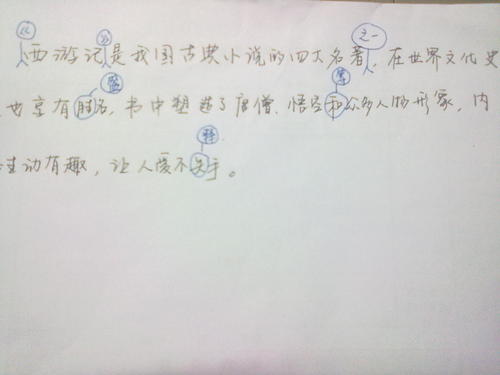 《 》 之一
西游记是我国古典小说的四大名著，在世界文化史
盛 等
也享有胜名，书中塑造了唐僧、悟空和众多人物形象，内
释
生动有趣，让人爱不手。